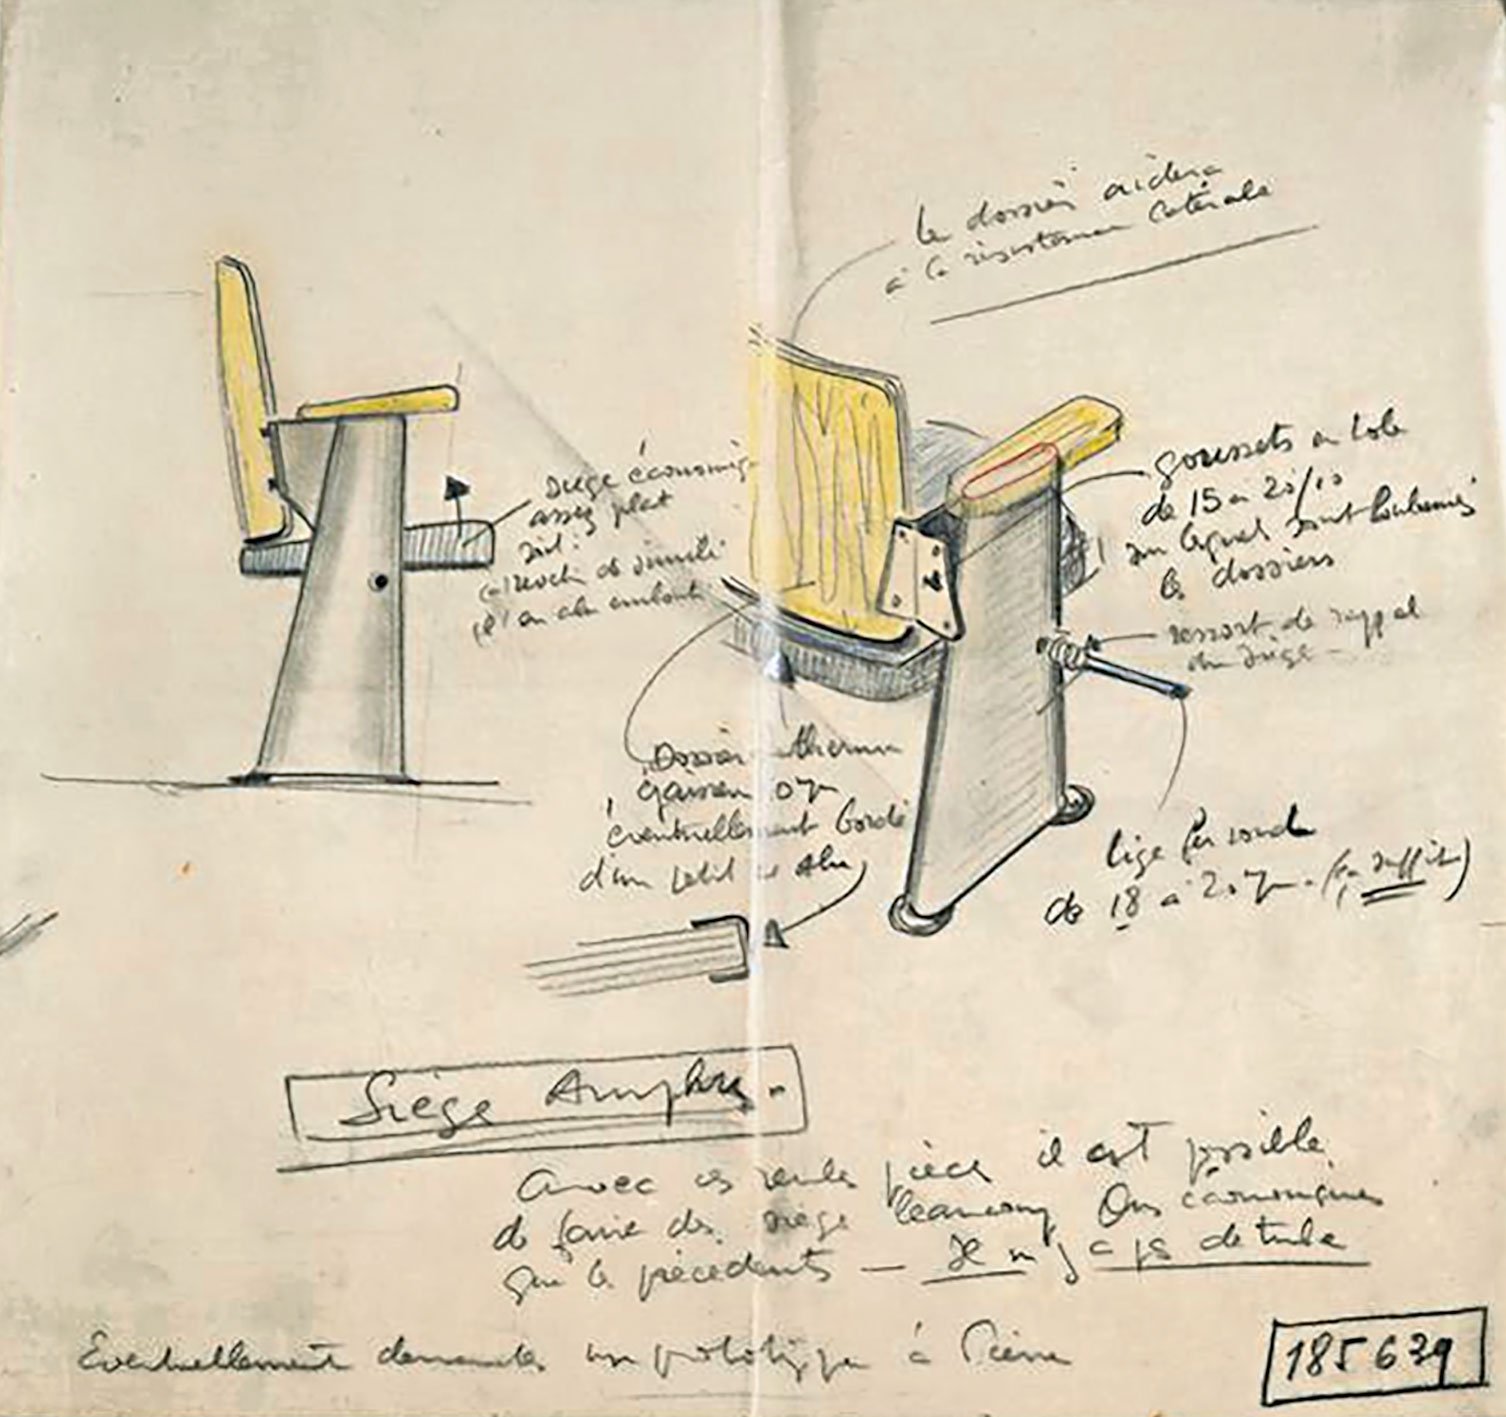 le dossier aidera
à la résistance latérale
siège économiq
assez plat
soit :
de simili
en alu embouti
goussets en tole
de 15 a 20/10
sur lequel sont boulonnés
les dossiers
ressort de rappel
du siège
Dossier
eventuellement bordé
d'un petit alu
tige fer rond
de 18 a 20 (ça suffit)
Siège Amphi.
Avec ces seules pièces il est possible
de faire des siège beaucoup économiques
que les précédents — Il n'y a pas de tube
Eventuellement demander un prototype à Pierre
185639